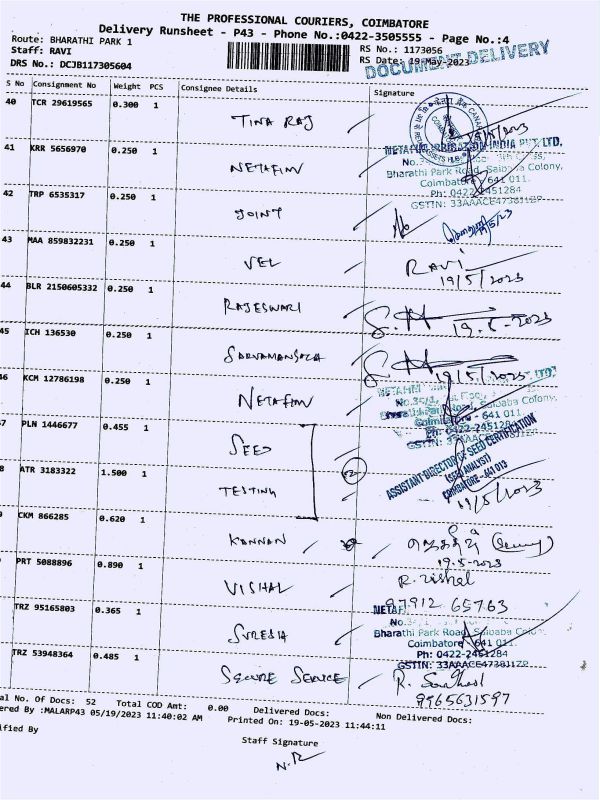 THE PROFESSIONAL COURIERS, COIMBATORE
Delivery Runsheet - P43 - Phone No.:0422-3505555 - Page No.:4
Route: BHARATHI PARK 1
RS No.: 1173056
Staff: RAVI
RS Date: 19-May-2023
DRS No.: DCJB117305604
DOCUMENT DELIVERY
S No Consignment No Weight PCS Consignee Details Signature
40 TCR 29619565 0.300 1 TINA RAJ
19/5/2023
41 KRR 5656970 0.250 1 NETAFIM
INDIA PVT. LTD.
Bharathi Park Road, Saibaba Colony,
Coimbatore - 641 011.
Ph: 0422-2451284
GSTIN: 33AAACE4738J1ZP
42 TRP 6535317 0.250 1 JOINT
19/5/23
43 MAA 859832231 0.250 1 VEL RAVI
19/5/2023
44 BLR 2150605332 0.250 1 RAJESWARI
19-5-2023
45 ICH 136530 0.250 1
19/5/2023
46 KCM 12786198 0.250 1 NETAFIM
Saibaba Colony,
Coimbatore - 641 011.
Ph: 0422-2451284
47 PLN 1446677 0.455 1 SEED
ASSISTANT DIRECTOR OF SEED CERTIFICATION
(SEED ANALYST)
COIMBATORE - 641 013
8 ATR 3183322 1.500 1 TESTING
19/5/2023
9 CKM 866285 0.620 1 KANNAN
19.5.2023
PRT 5088896 0.890 1 VISHAL R. Vishal
97912 65763
TRZ 95165803 0.365 1 SURESH
NETAF
Bharathi Park Road, Saibaba Colony
Coimbatore - 641 011.
Ph: 0422-2451284
GSTIN: 33AAACE4738J1ZP
TRZ 53948364 0.485 1 SECURE SERVICE R. Santhosh
9965631597
al No. Of Docs: 52 Total COD Amt: 0.00 Delivered Docs: Non Delivered Docs:
ered By :MALARP43 05/19/2023 11:40:02 AM Printed On: 19-05-2023 11:44:11
ified By
Staff Signature